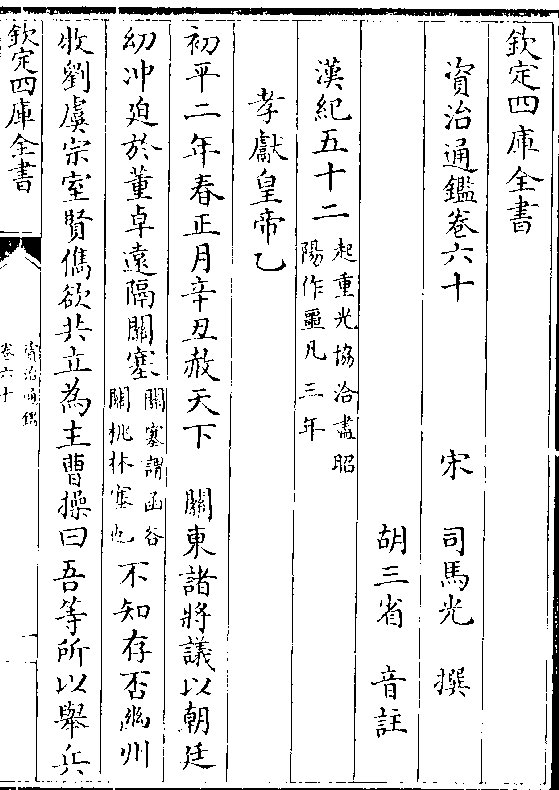 欽定四庫全書
資治通鑑卷六十
宋　司馬光　撰
胡三省　音註
漢紀五十二起重光協洽盡昭陽作噩凡三年
孝獻皇帝乙
初平二年春正月辛丑赦天下　關東諸將議以朝廷
幼沖迫於董卓遠隔關塞關塞謂函谷關桃林塞也不知存否幽州
牧劉虞宗室賢儁欲共立為主曹操曰吾等所以舉兵
欽定四庫全書
資治通鑑
卷六十
一